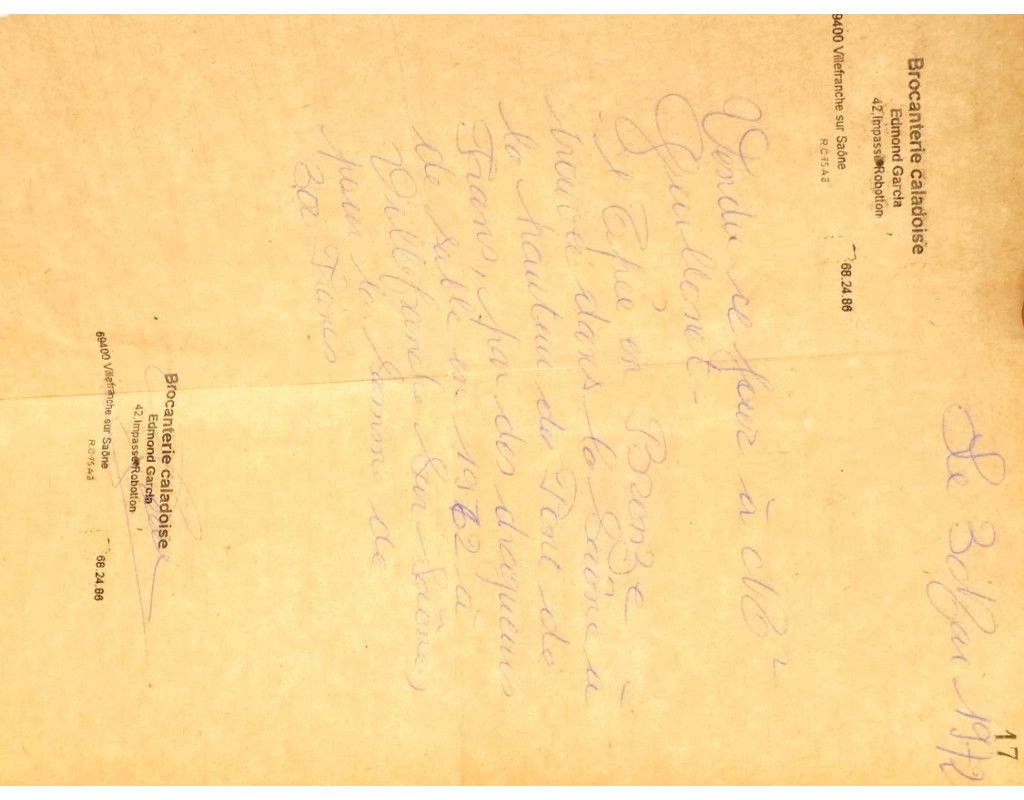 17
Le 30 Mai 1972
Brocanterie caladoise
Edmond Garcia
42, Impasse Robotton
69400 Villefranche sur Saône 68.24.86
R.C 75 A 3
Vendu ce jour à Mr
Guillonet -
1 Epée en Bronze
trouvé dans la Saône a
la hauteur du Pont de
Frans, par des dragueurs
de sable en 1962 a
Villefranche sur Saône,
pour la somme de
Francs
Brocanterie caladoise
Edmond Garcia
42, Impasse Robotton
69400 Villefranche sur Saône 68.24.86
R.C 75 A 3